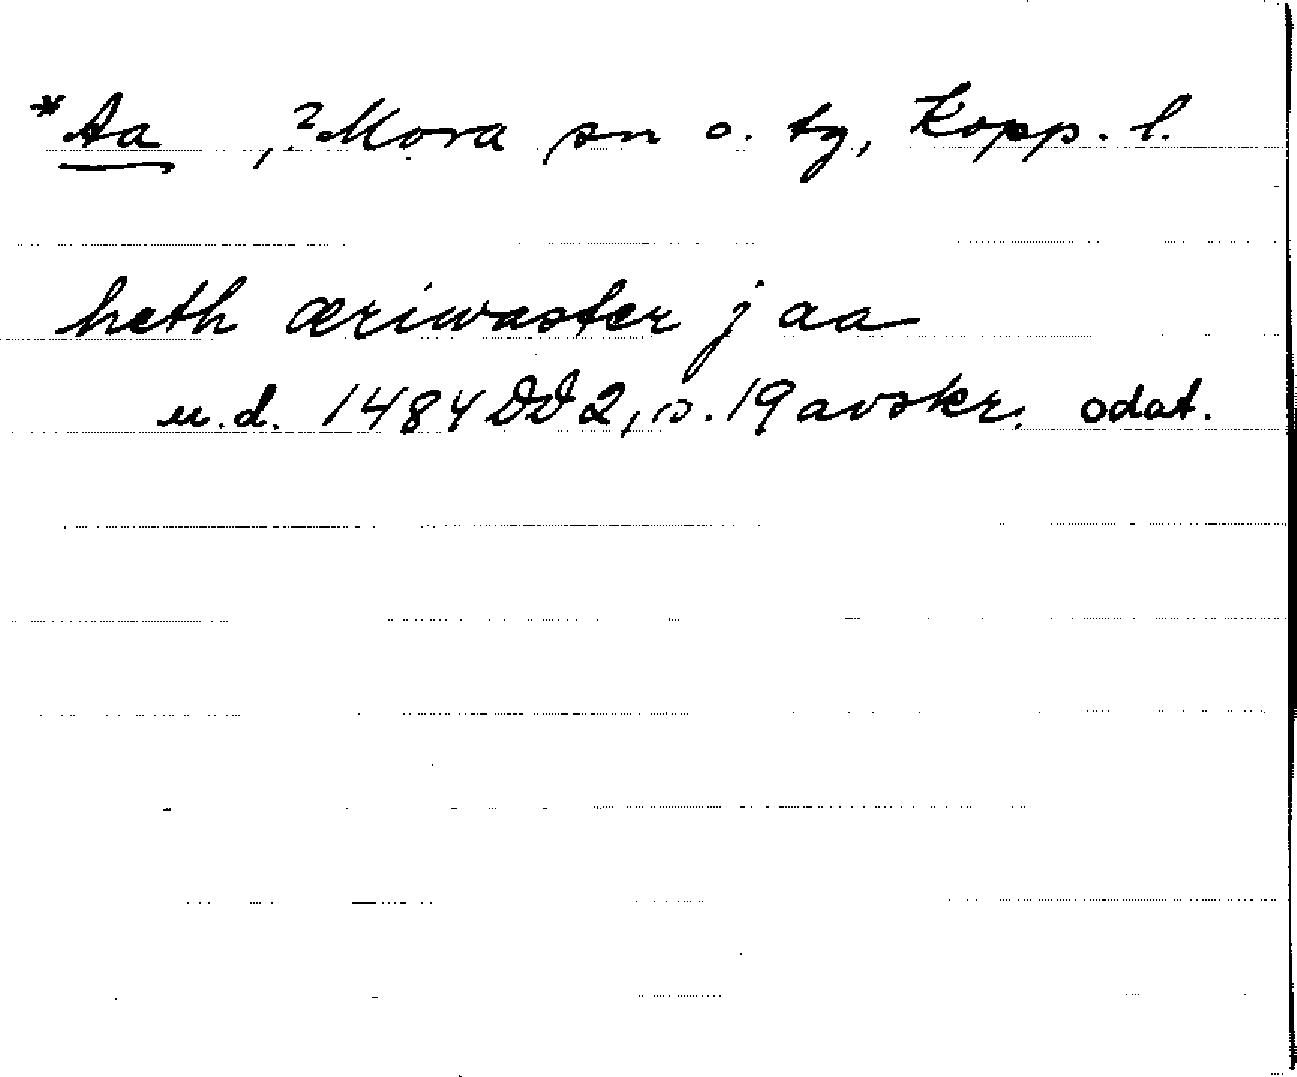 *Aa , ?Mora sn o. tg, Kopp. l.
hæth æriwaster j aa
u.d. 1484 DD 2, s. 19 avskr. odat.